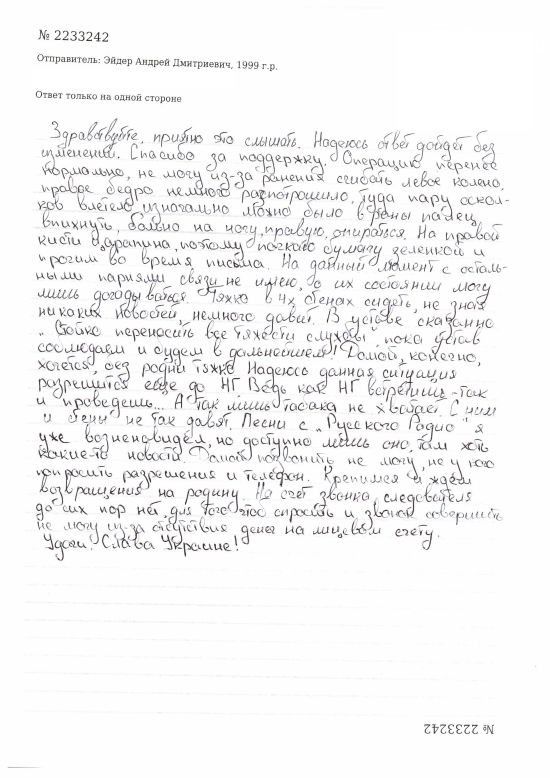 № 2233242
Отправитель: Эйдер Андрей Дмитриевич, 1999 г.р.
Ответ только на одной стороне
Здравствуйте, приятно это слышать. Надеюсь ответ дойдёт без
изменений. Спасибо за поддержку. Операцию перенёс
нормально, не могу из-за ранения сгибать левое колено,
правое бедро немного распотрошило, туда пару оскол-
ков влетело, изначально можно было в раны палец
впихнуть, больно на ногу, правую, опираться. На правой
кисти царапина, поэтому пачкаю бумагу зеленкой и
прочим во время письма. На данный момент с осталь-
ными парнями связи не имею, о их состоянии могу
лишь догадываться. Тяжко в 4х стенах сидеть, не зная
никаких новостей, немного давит. В уставе сказанно
„Стойко переносить все тяжести службы", пока устав
соблюдаем и будем в дальнейшем! Домой, конечно,
хочется, без родни тяжко. Надеюсь данная ситуация
разрешится ещё до НГ. Ведь как НГ встретишь - так
и проведешь... А так лишь табака не хватает. С ним
и стены не так давят. Песни с „Русского Радио" я
уже возненавидел, но доступно лишь оно, там хоть
какие-то новости. Домой позвонить не могу, не у кого
попросить разрешения и телефон. Крепимся и ждём
возвращения на родину. На счёт звонка, следователя
до сих пор нет, для того чтоб спросить и звонок совершить
не могу из-за отсутствия денег на лицевом счету.
Удачи, Слава Украине!
№ 2233242